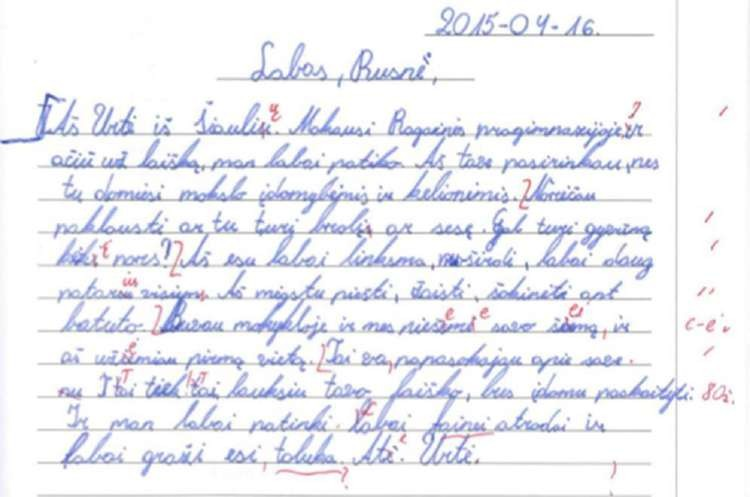 2015-04-16.
Labas, Rusnė,
Aš Urtė iš Šiaulių. Mokausi Ragainės progimnazijoje, ir
ačiū už laišką, man labai patiko. Aš tave pasirinkau, nes
tu domiesi mokslo įdomybėmis ir kelionėmis. Norėčiau
paklausti ar tu turį brolį ar sesę. Gal turi gyvūną
kokį nors? Aš esu labai linksma, nuoširdi, labai daug
patariu visiems. Aš mėgstu piešti, žaisti, šokinėti ant
batuto. Buvau mokykloje ir mes piešėme savo šeimą, ir
aš užėmiau pirmą vietą. Tai va, papasakojau apie save.
nu Tai tiek tai lauksiu tavo laiško, bus įdomu paskaityti. 80ž.
Ir man labai patinki. Labai fainei atrodai ir
labai graži esi, Atė. Urtė.